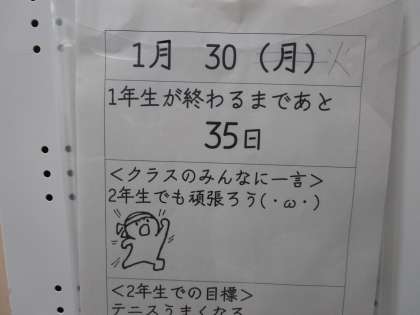 1月 30 (月) 火
1年生が終わるまであと
35日
<クラスのみんなに一言>
2年生でも頑張ろう(・ω・)
<2年生での目標>
テニスうまくなる